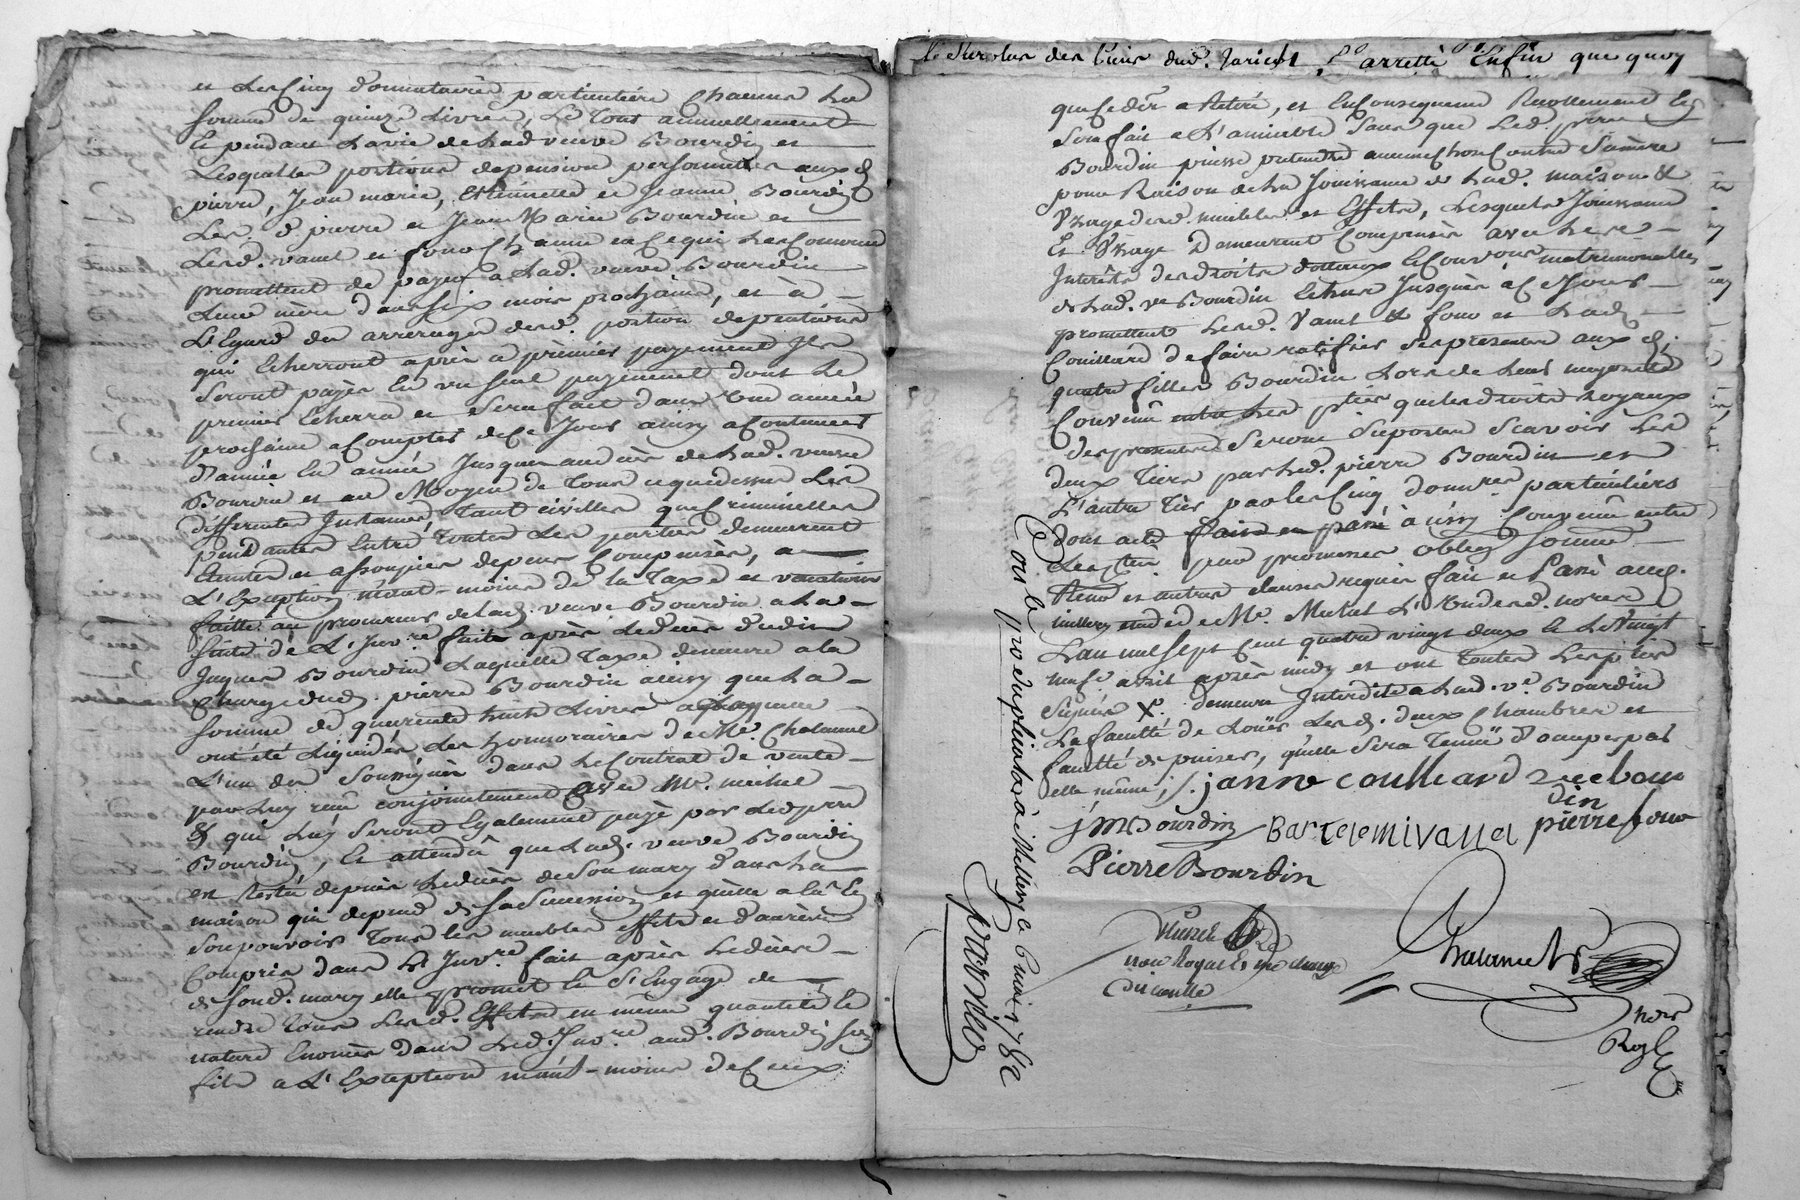 et les Cinq donnataires particuliers Chacun la
somme de quinze Livres, Le Tout annuellement
Et pendant la vie de lad veuve Bourdin et
Lesquelles portions de pension personnelles auxd
pierre, Jean marie, Etiennette et Jeanne Bourdin
Les d pierre et Jean Marie Bourdin et
Lesd. vanel et four Chacun en Ce qui les Concerne
promettent de payer a Lad. veuve Bourdin
Leur mère dans six mois prochains, et à
L'Egard des arrerages desd. portion de pentions
qui Echerront après Ce premier payement Ils
Seront payés En un seul payement dont le
premier Echerra et Sera fait dans une année
prochaine a Compter de Ce Jour ainsy a Continuer
d'année En année Jusques au decès de lad. veuve
Bourdin et au Moyen de Tout ce que dessus Les
differentes Instances, tant civilles que Criminelles
pendantes Entre Toutes Les parties demeurent
Eteintes et assoupies depens Compensés, a
L'Exception néant-moins de la Taxe et vacations
faitte au procureur de lad. veuve Bourdin a la
suite de L'Inv.re fait après le decès dudit
Jaques Bourdin Laquelle Taxe demeure a la
Charge dud. pierre Bourdin ainsy que la
somme de quarente huit Livres a laquelle
ont été Liquidés les honnoraires de Me. Chalamel
L'un des Soussignés dans le Contrat de vente
par Luy reçu conjointement avec Me. michel
& qui Luy Seront Egalement payé par Led pierre
Bourdin, Et attendû que Lad. veuve Bourdin
est restée depuis Le decès de Son mary dans la
maison qui depend de sa Succession et qu'elle a la En
Son pouvoir Tous les meubles effets et danrées
Compris dans L'Inv.re fait après Le decès
de Sond. mary elle promet & S'Engage de
rendre tous Lesd. Effets en même quantité et
nature Enoncés dans Led. Inv.re aud. Bourdin son
fils a L'Exception néant-moins de Ceux
le surplus des biens dud. Jaricot, so arretté Enfin que quoy
que Ce dér a Retiré, et En Consequence Reellement Et
Son fait a L'amiable Sans que Led. pierre
Bourdin puisse pretendre aucune Chose Contre Sa mère
pour Raison de la Jouissance de Lad. maison &
Usage desd. meubles et Effets, Lesquels Jouissance
Et Usage Demeurent Compensés avec les
Interêts des droits dottaux Et Convens matrimonialles
de Lad. ve Bourdin Echus Jusques à Ce Jour
promettent Lesd. Vanel & four et Lad.
Couillard de faire ratifier Ses presentes aux d.
quatre filles Bourdin Lors de leur majorité
Convenû entre les pties que les droits royaux
des presentes Seront Suportés Scavoir Les
deux Tiers par Led. pierre Bourdin et
L'autre Tier par les Cinq donnres. particuliers
dont acte fait et passé ainsy Convenu entre
Les pties pour promesses oblig Soumis
Renon et autres clauses requises fait et Passé aud.
millery etude de Me. Michel L'Un desd. nores
L'an mil Sept Cent quatre vingt deux Et Le Vingt
neuf avril après midy et ont Toutes Les pties
Signées X. demeure Interdite a Lad. ve. Bourdin
La faculté de Loüer Les d. deux Chambres et
faculté de puiser, qu'elle Sera Tenuë d'occuper par
elle même, /. janne coulleard veeve bour
din
jmBourdin BarTelemivanel pierre four
Pierre Bourdin
Michel
nore Royal Et
Chalamel
nore
Royl
Con.lé pro duplicata à Millery le 6 mai 1782